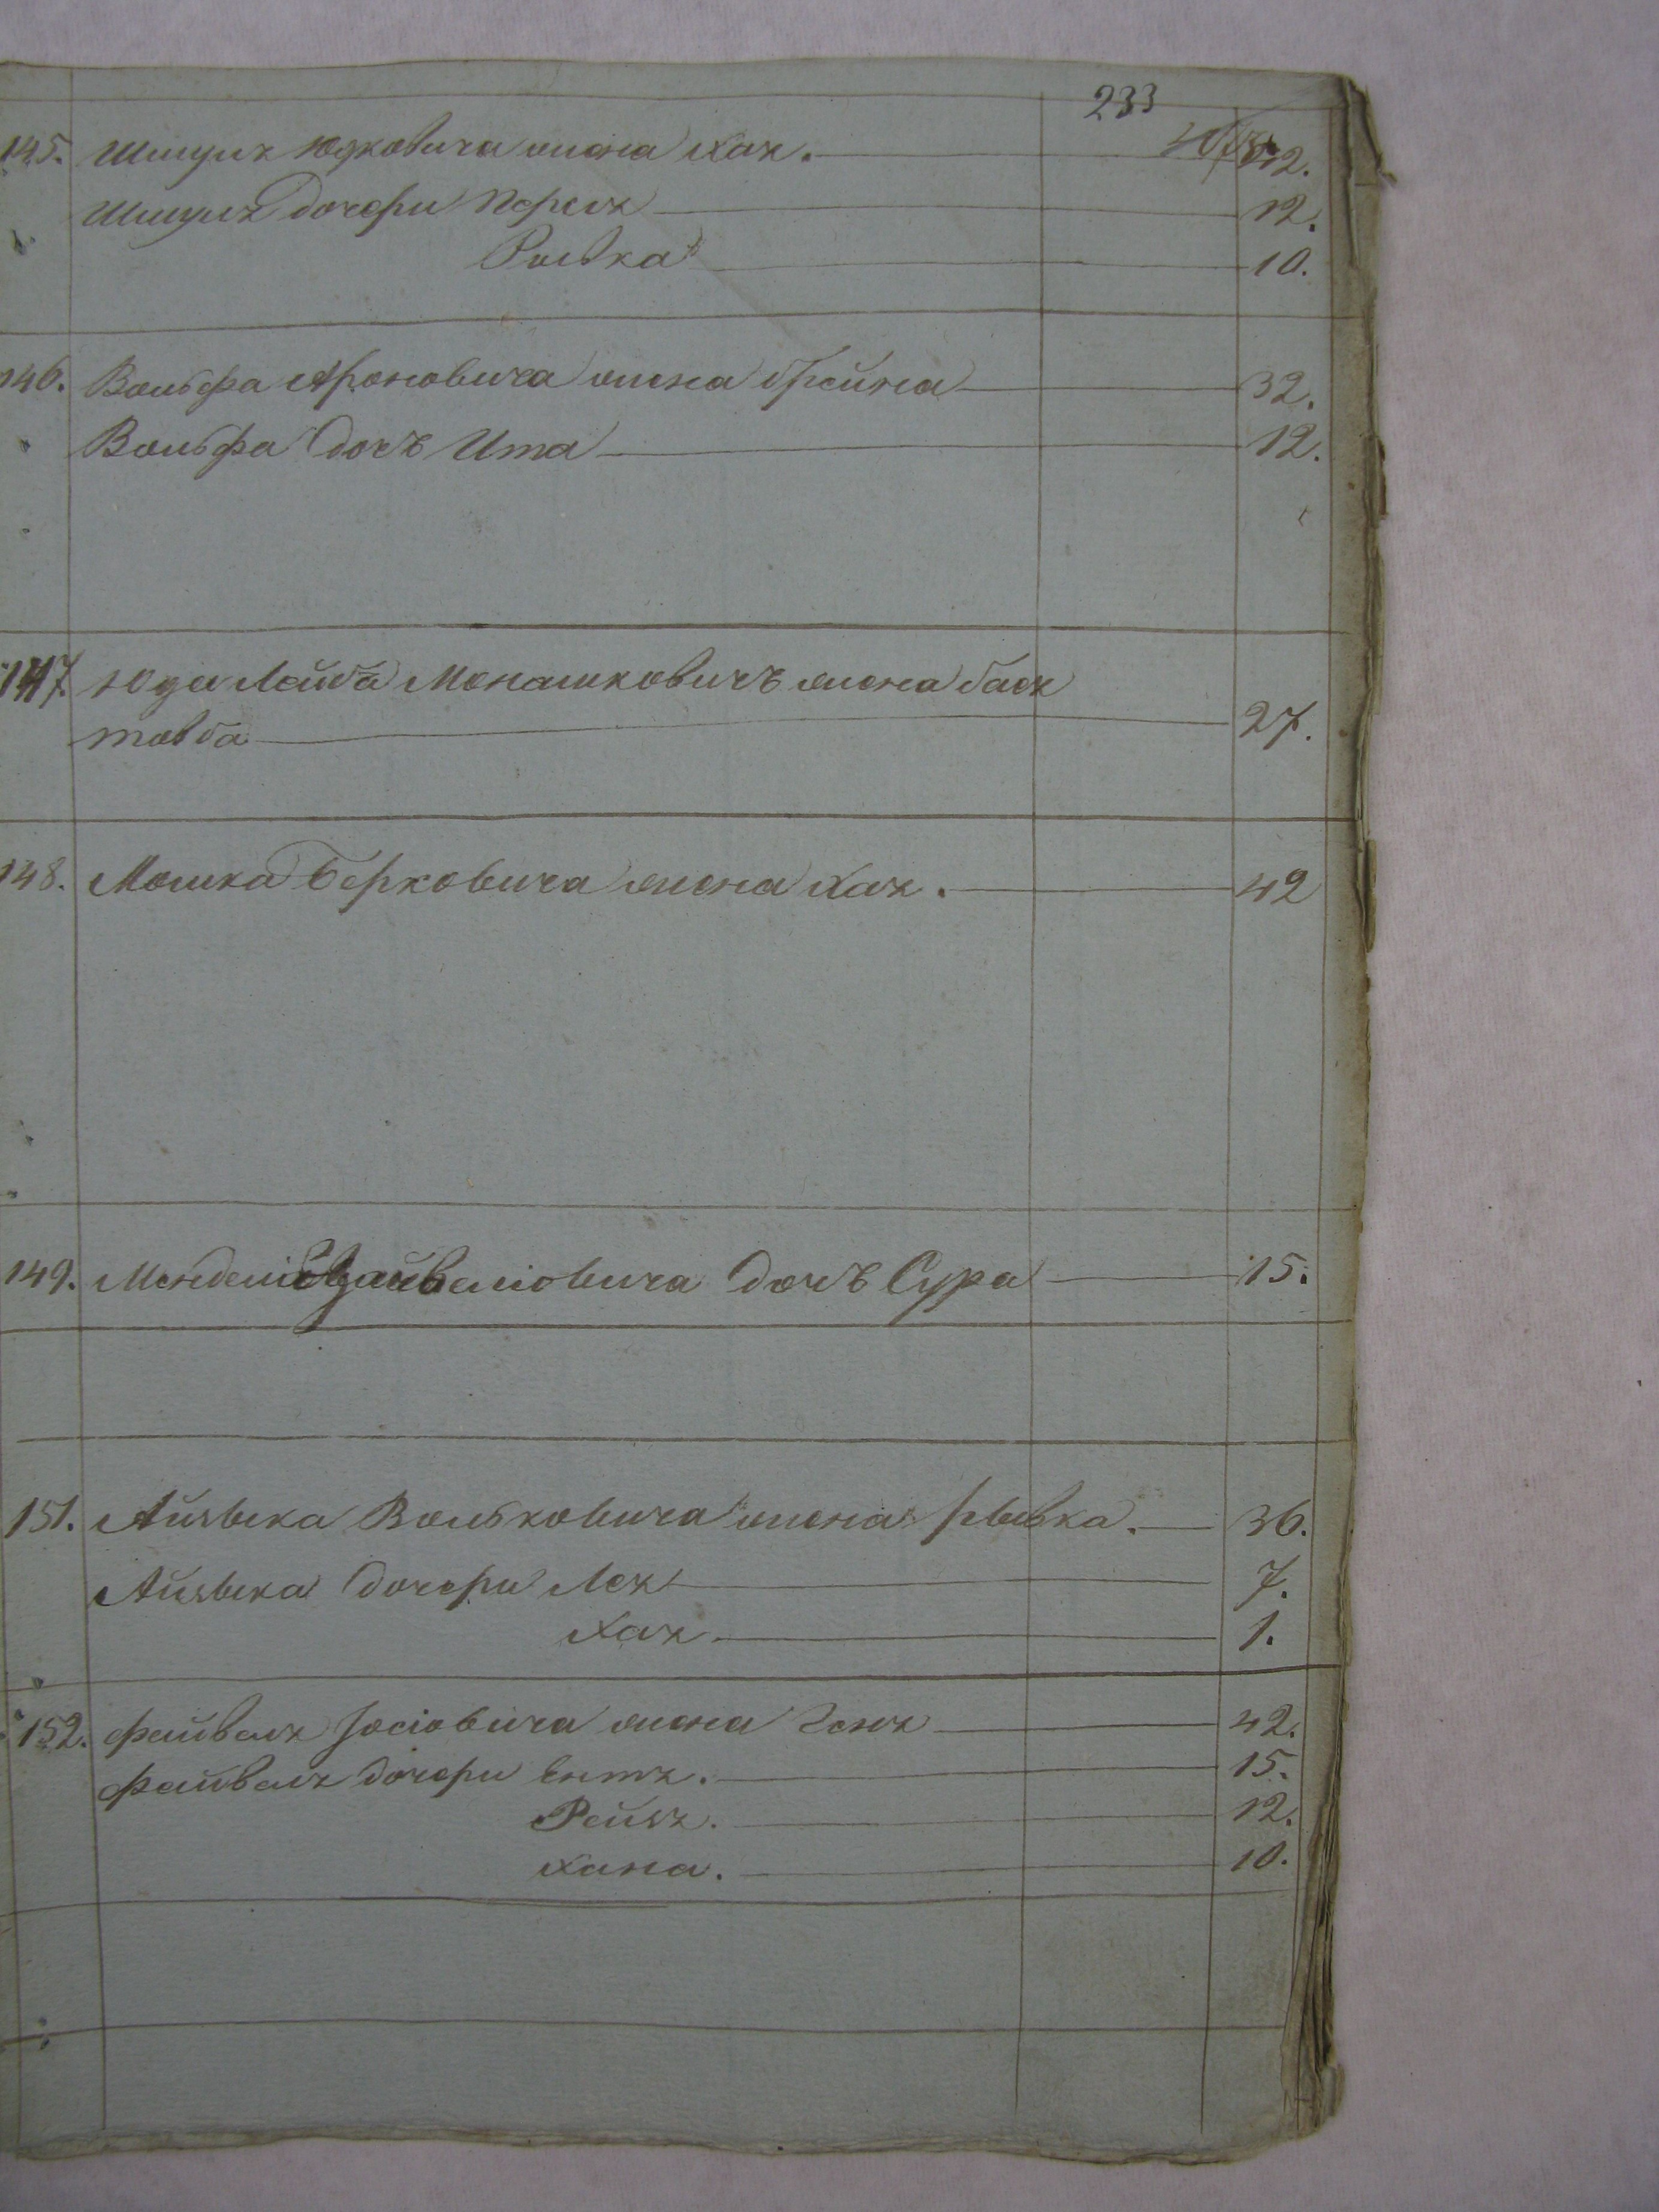 233
145. Шмуля Юдковича жена Хая. 42.
Шмуля дочери Переля 12.
Ривка 10.
146. Вольфа Ароновича жена Фрейна 32.
Вольфа дочь Ита 12.
147. Юда Лейба Монашковичь жена Бася
товба 27.
148. Мошка Берковича жена Хая. 42
149. Менделя Файвелiовича дочь Сура 15.
151. Айзыка Вольковича жена Рывка. 36.
Айзыка дочери Лея 7.
Хая. 1.
152. Файвеля Iосiовича жена Геня 42.
Файвеля дочери Ентя. 15.
Рейзя. 12.
Хана. 10.